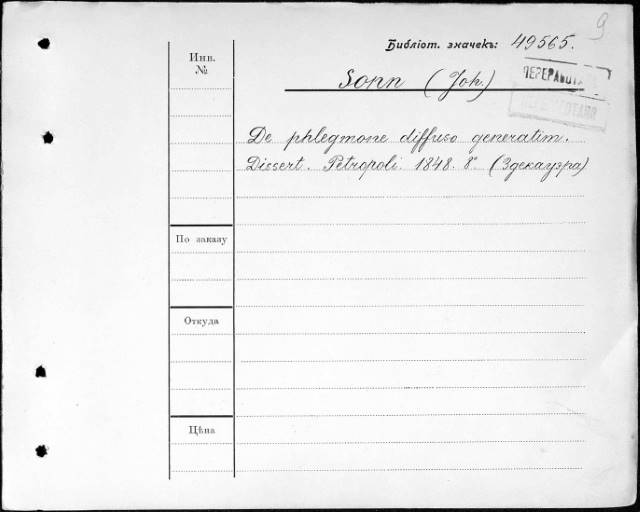 9
Библіот. значекъ: 49565.
Инв.
№
ПЕРЕРАБОТА
Sonn (Joh.)
De phlegmone diffuso generatim.
Dissert. Petropoli. 1848. 8º. (Здекауэра)
По заказу
Откуда
Цѣна